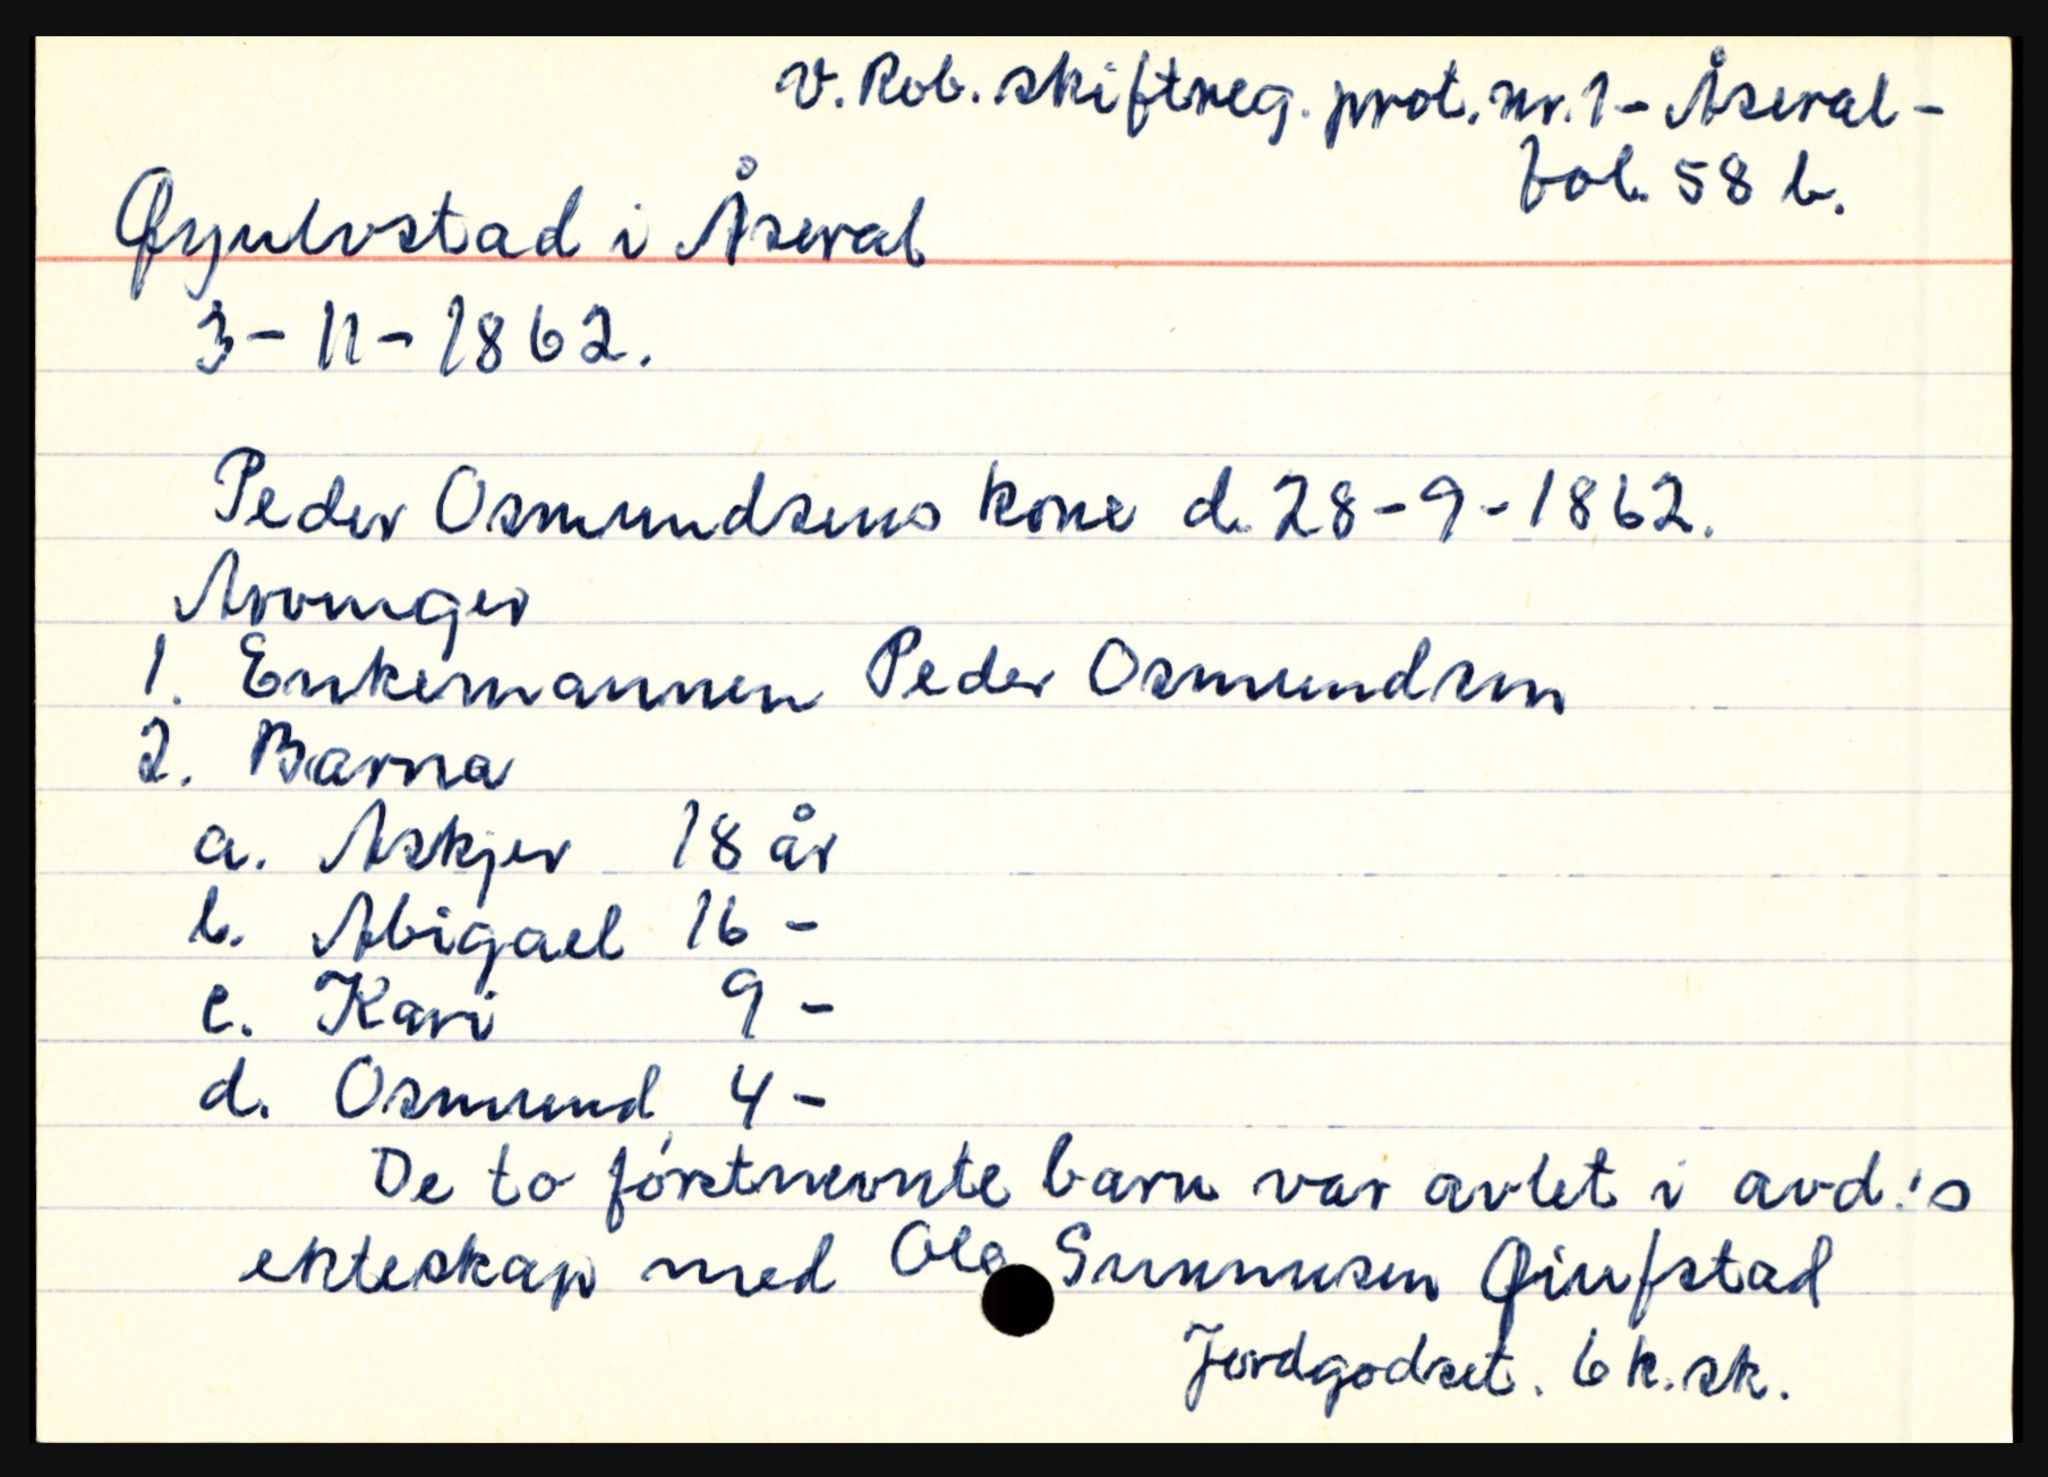 V. Rob. skiftreg. prot. nr. 1 - Åseral -
fol. 58 b.
Øyulvstad i Åseral
3 - 11 - 1862.
Peder Osmundsens kone d. 28 - 9 - 1862.
Arvinger
1. Enkemannen Peder Osmundsen
2. Barna
a. Askjer 18 år
b. Abigael 16 -
c. Kari 9 -
d. Osmund 4 -
De to førstnevnte barn var avlet i avd.'s
ekteskap med Ola Gunnusen Øiufstad
Jordgodset. 6 k. sk.